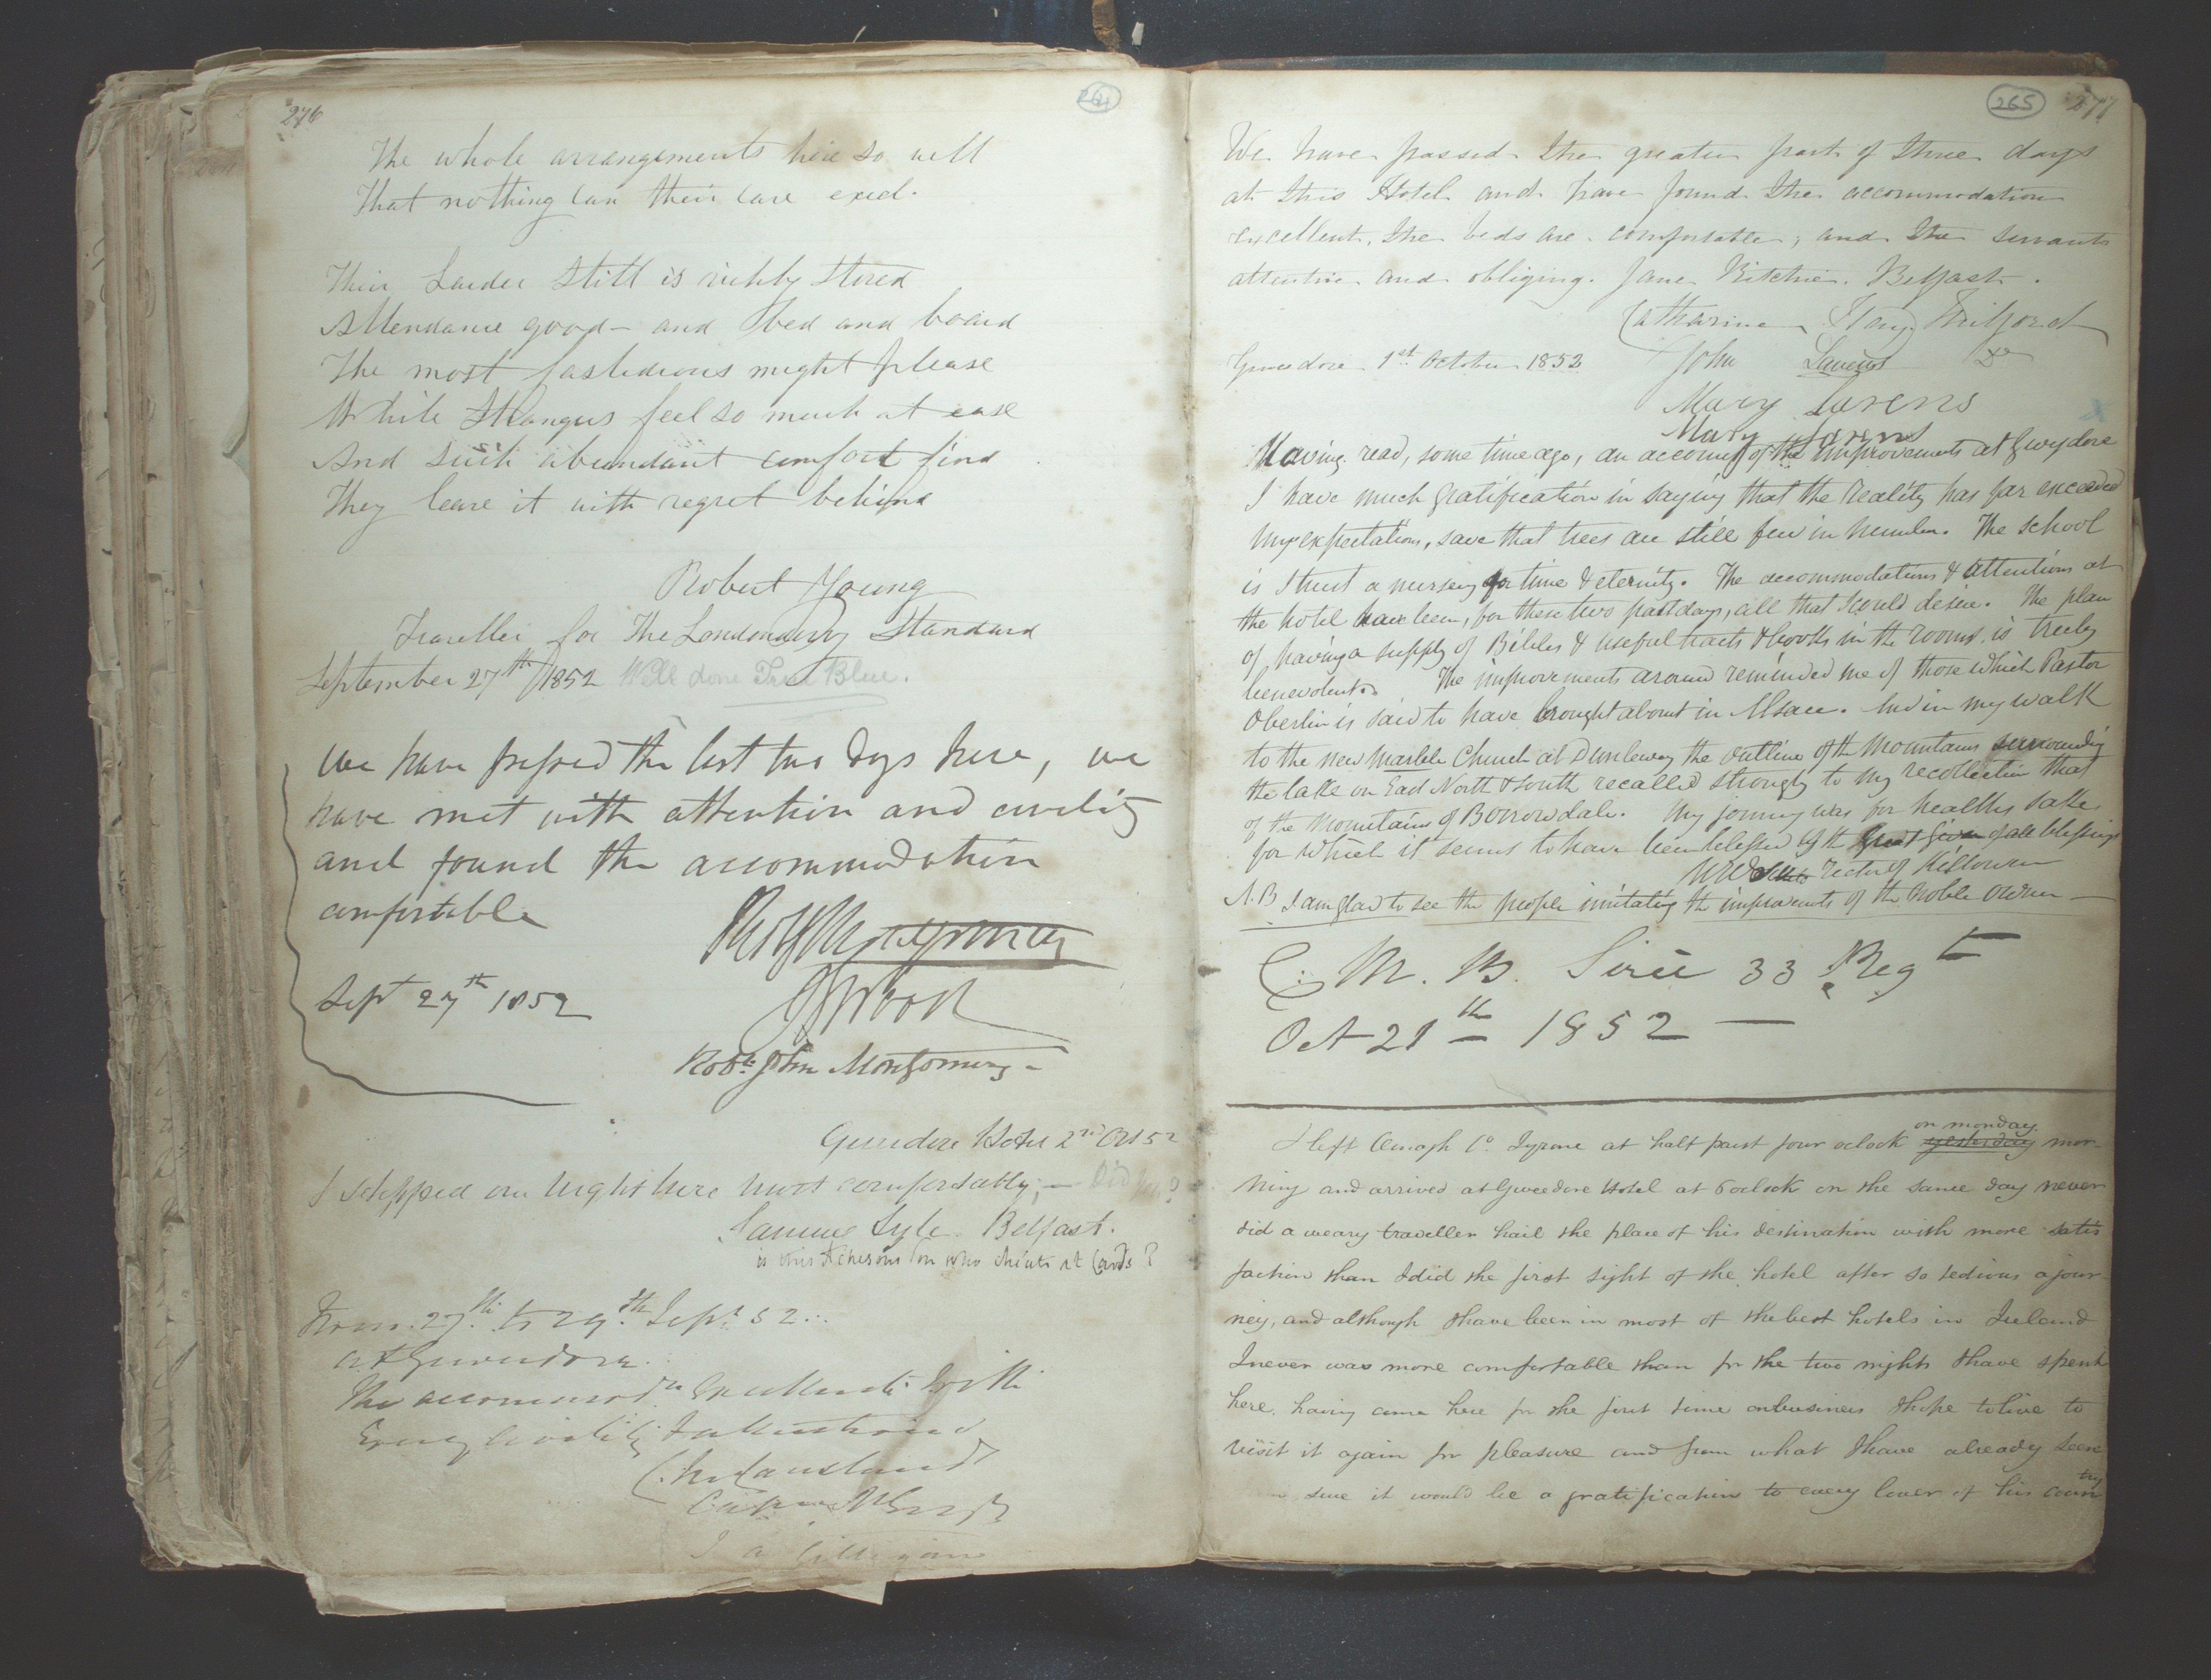 276
264
The whole arrangements here so well
That nothing can their care exed.
Their Larder Still is richly Stored
Attendance good - and bed and board
The most fastedious might please
While Strangers feel so much at ease
And such abundant comfort find
They leave it with regret behind
Robert Young
Traveller for The Londonderry Standard
September 27th 1852 Well done True Blue.
We have passed the last two days here, we
have met with attention and civility
and found the accommodation
comfortable
Montgomery
Sept 27th 1852
Robt. John Montgomery -
Gweedore Hotel 2nd Oct 52
I stepped one night here most comfortably; - Did you?
Lyle Belfast.
is this on who cheats at Cards?
From 27th to 29th Sept 52
at Gweedore.
The accommodn Excellent with
Every Civility & attention
265
277
We have passed the greater part of three days
at this Hotel and have found the accommodation
excellent, the beds are comfortable, and the servants
attentive and obliging. Jane Ritchie. Belfast.
Catharine Milford
Gweedore 1st October 1852 John Lavens Do
Mary Lavens
Mary Lavens
Having read, some time ago, an account of the improvements at Gwydore
I have much gratification in saying that the reality has far exceeded
my expectations, save that trees are still few in number. The school
is I trust a nursery for time & eternity. The accommodations & attentions at
the hotel have been, for these two past days, all that I could desire. The plan
of having a supply of Bibles & useful tracts & books in the rooms is truly
benevolent. The improvements around reminded me of those which Pastor
Oberlin is said to have brought about in Alsace. And in my walk
to the new marble Church at Dunlewey the outline of the Mountains surrounding
the lake on East North & South recalled strongly to my recollection that
of the Mountains of Borrowdale. My journey was for healths sake
for which it seems to have been blessed by the Great Giver of all blessings
Rector of
N.B I am glad to see the people imitating the improvements of the Noble Owner -
M. B. 33 Regt
Oct 21th 1852 -
I left Omagh Co. Tyrone at half past four oclock yesterday on monday mor-
ning and arrived at Gweedore Hotel at 6 oclock on the same day never
did a weary traveller hail the place of his destination with more satis
faction than I did the first sight of the hotel after so tedious a jour
ney, and although I have been in most of the best hotels in Ireland
I never was more comfortable than for the two nights I have spent
here. having come here for the first time on business I hope to live to
visit it again for pleasure and from what I have already seen
sure it would be a gratification to every lover of his country